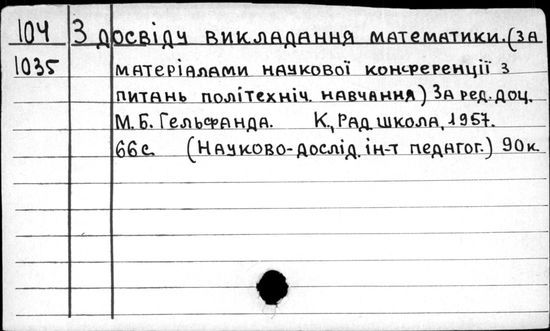 104 З досвіду викладання математики. (За
1035 матеріалами наукової конференції з
питань політехніч. навчання) За ред. доц.
М. Б. Гельфанда. К., Рад школа, 1957.
66с. (Науково-дослід. ін-т педагог.) 90к.